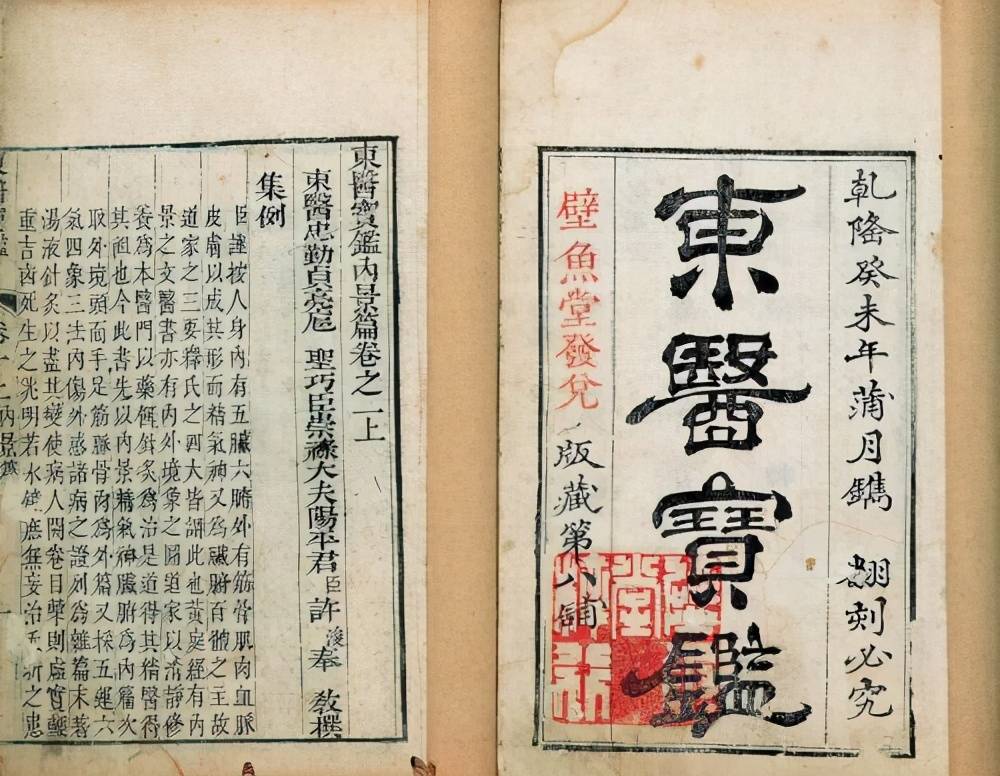 乾隆癸未年蒲月鐫 翻刻必究
東醫寶鑑
壁魚堂發兌
版藏第八鋪
東醫寶鑑內景篇卷之一上
東醫忠勤貞亮扈 聖功臣崇祿大夫陽平君臣許浚奉 敎撰
集例
臣謹按人身內有五臟六腑外有筋骨肌肉血脈
皮膚以成其形而精氣神又爲臟腑百體之主故
道家之三要釋氏之四大皆謂此也黃庭經有內
景之文醫書亦有內外境象之圖道家以淸靜修
養爲本醫門以藥餌鍼灸爲治是道得其精醫得
其粗也今此書先以內景精氣神臟腑爲內篇次
取外境頭面手足筋脈骨肉爲外篇又採五運六
氣四象三法內傷外感諸病之證列爲雜篇末著
湯液針灸以盡其變使病人開卷目擊則虛實輕
重吉凶死生之兆明若水鏡庶無妄治夭折之患